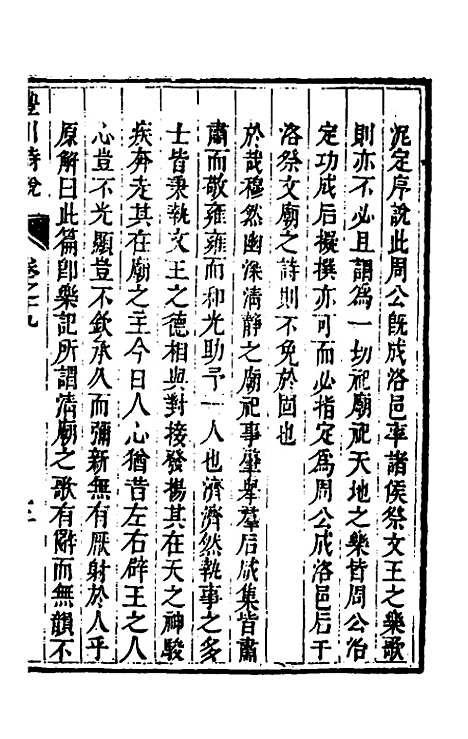 泥定序說此周公旣成洛邑率諸侯祭文王之樂歌
則亦不必且謂為一切祀廟祀天地之樂皆周公治
定功成后擬撰亦可而必指定為周公成洛邑后于
洛祭文廟之詩則不免於固也
於哉穆然幽深清靜之廟祀事肇舉羣后咸集皆肅
肅而敬雍雍而和光助予一人也濟濟然執事之多
士皆秉執文王之德相與對接發揚其在天之神駿
疾奔走其在廟之主今日人心猶昔左右辟王之人
心豈不光顯豈不欽承久而彌新無有厭射於人乎
原解曰此篇卽樂記所謂清廟之歌有辭而無韻不
豐川詩說
卷之十九